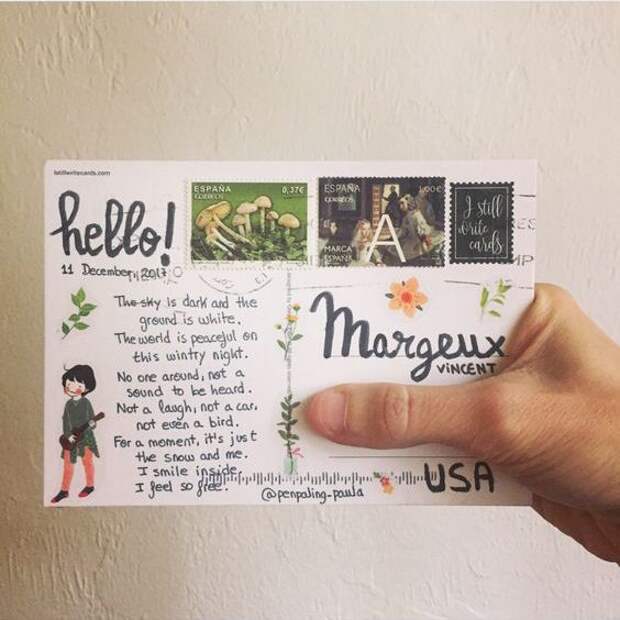 istillwritecards.com
hello!
11 December, 2017
The sky is dark and the
ground is white.
The world is peaceful on
this wintry night.
No one around, not a
sound to be heard.
Not a laugh, not a car,
not even a bird.
For a moment, it's just
the snow and me.
I smile inside,
I feel so free.
@penpaling_paula
ESPAÑA
CORREOS
0,37€
ESPAÑA
CORREOS
1,00€
MARCA
ESPAÑA
A
I still
write
cards
Margeux
VINCENT
USA